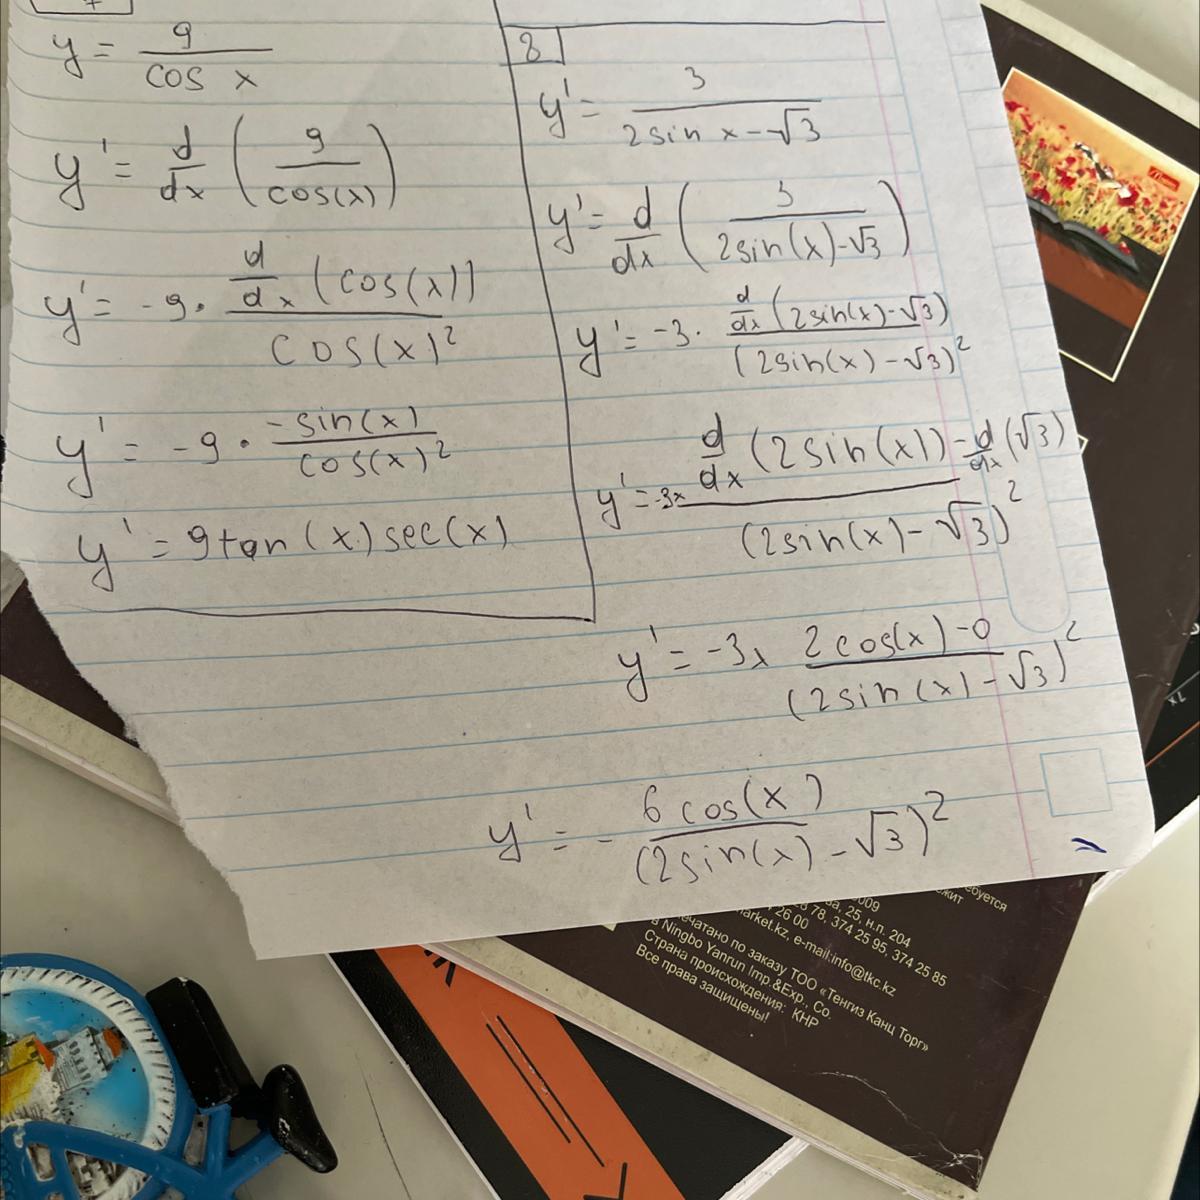 y = 9 / cos x
y' = d/dx ( 9 / cos(x) )
y' = -9 · d/dx (cos(x)) / cos(x)²
y' = -9 · -sin(x) / cos(x)²
y' = 9tan(x)sec(x)
8
y' = 3 / 2sin x-√3
y' = d/dx ( 3 / 2sin(x)-√3 )
y' = -3 · d/dx (2sin(x)-√3) / (2sin(x)-√3)²
y' = -3x d/dx (2sin(x)) - d/dx (√3) / (2sin(x)-√3)²
y' = -3x 2cos(x)-0 / (2sin(x)-√3)²
y' = - 6cos(x) / (2sin(x)-√3)²
25, н.п. 204
78, 374 25 95, 374 25 85
market.kz, e-mail:info@tkc.kz
по заказу ТОО «Тенгиз Канц Торг»
Ningbo Yanrun Imp.&Exp., Co.
Страна происхождения: КНР
Все права защищены!